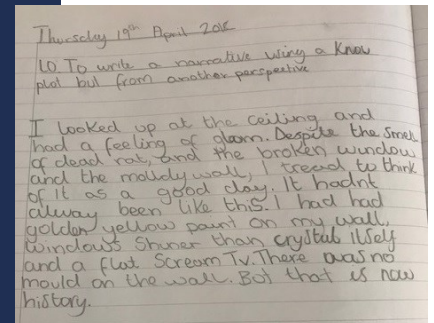 Thursday 19th April 2018
LO. To write a narrative using a know
plot but from another perspective
I looked up at the ceiling and
had a feeling of gloom. Despite the smell
of dead rat, and the broken window
and the moldy wall, I tread to think
of it as a good day. It hadnt
alway been like this. I had had
golden yellow paint on my wall,
windows shiner than crystal itself
and a flat Scream Tv. There was no
mould on the wall. But that is now
history.